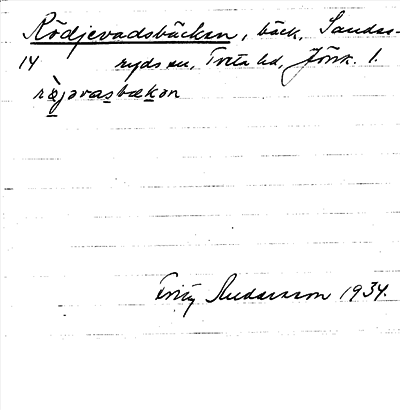 Rödjevadsbäcken, bäck, Sanders-
14 ryds sn, Tveta hd, Jönk. l.
rö̀java̠s̠bæk̠ən
Fritz Andersson 1934.